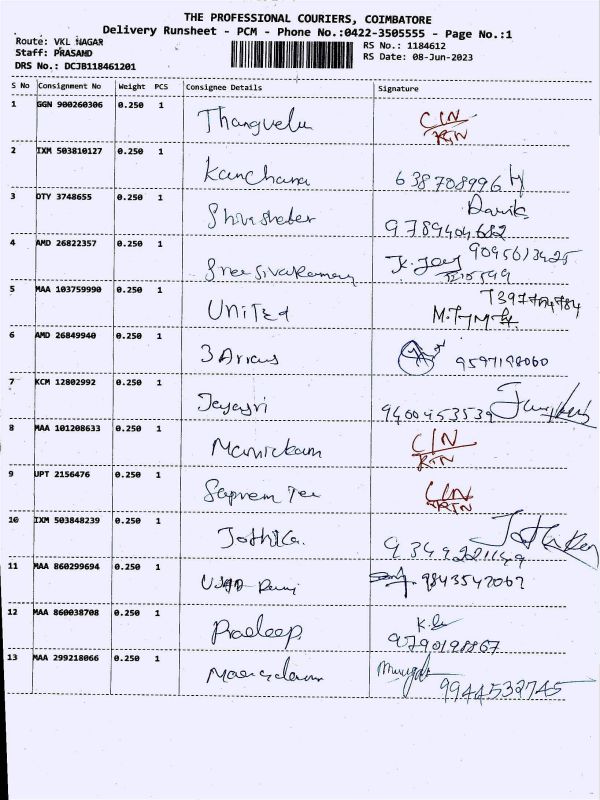 THE PROFESSIONAL COURIERS, COIMBATORE
Delivery Runsheet - PCM - Phone No.:0422-3505555 - Page No.:1
Route: VKL NAGAR
Staff: PRASAND
DRS No.: DCJB118461201
RS No.: 1184612
RS Date: 08-Jun-2023
S No Consignment No Weight PCS Consignee Details Signature
1 GGN 900260306 0.250 1 Thangvelu C/N
RTN
2 IXM 503810127 0.250 1 Kanchana 638708996
3 OTY 3748655 0.250 1
9789404682
4 AMD 26822357 0.250 1 Sree Sivaraman K. Joey 9095613425
5 MAA 103759990 0.250 1 United
6 AMD 26849940 0.250 1 3 Arrows 9597198060
7 KCM 12802992 0.250 1 Jayasri 9400453539
8 MAA 101208633 0.250 1 Manickam C/N
RTN
9 UPT 2156476 0.250 1 C/N
RTN
10 IXM 503848239 0.250 1 Jothika.
11 MAA 860299694 0.250 1 9843547062
12 MAA 860038708 0.250 1 Pradeep
9790198867
13 MAA 299218066 0.250 1
9944532745